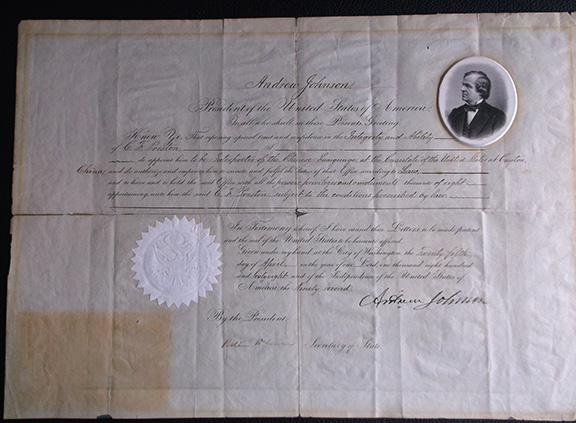 Andrew Johnson,
President of the United States of America,
To all who shall see these Presents, Greeting:
Know Ye, That reposing special trust and confidence in the Integrity and Ability
of C. F. Preston,
I do appoint him to be Interpreter of the Chinese Language, at the Consulate of the United States at Canton,
China; and do authorize and empower him to execute and fulfil the duties of that Office according to Law,
and to have and to hold the said Office with all the powers, privileges and emoluments thereunto of right
appertaining unto him the said C. F. Preston, subject to the conditions prescribed by law.
In Testimony whereof, I have caused these Letters to be made patent
and the seal of the United States to be hereunto affixed.
Given under my hand at the City of Washington, the Twenty fifth
day of April, in the year of our Lord one thousand eight hundred
and Sixty-eight and of the Independence of the United States of
America, the Ninety second.
Andrew Johnson
By the President:
Secretary of State